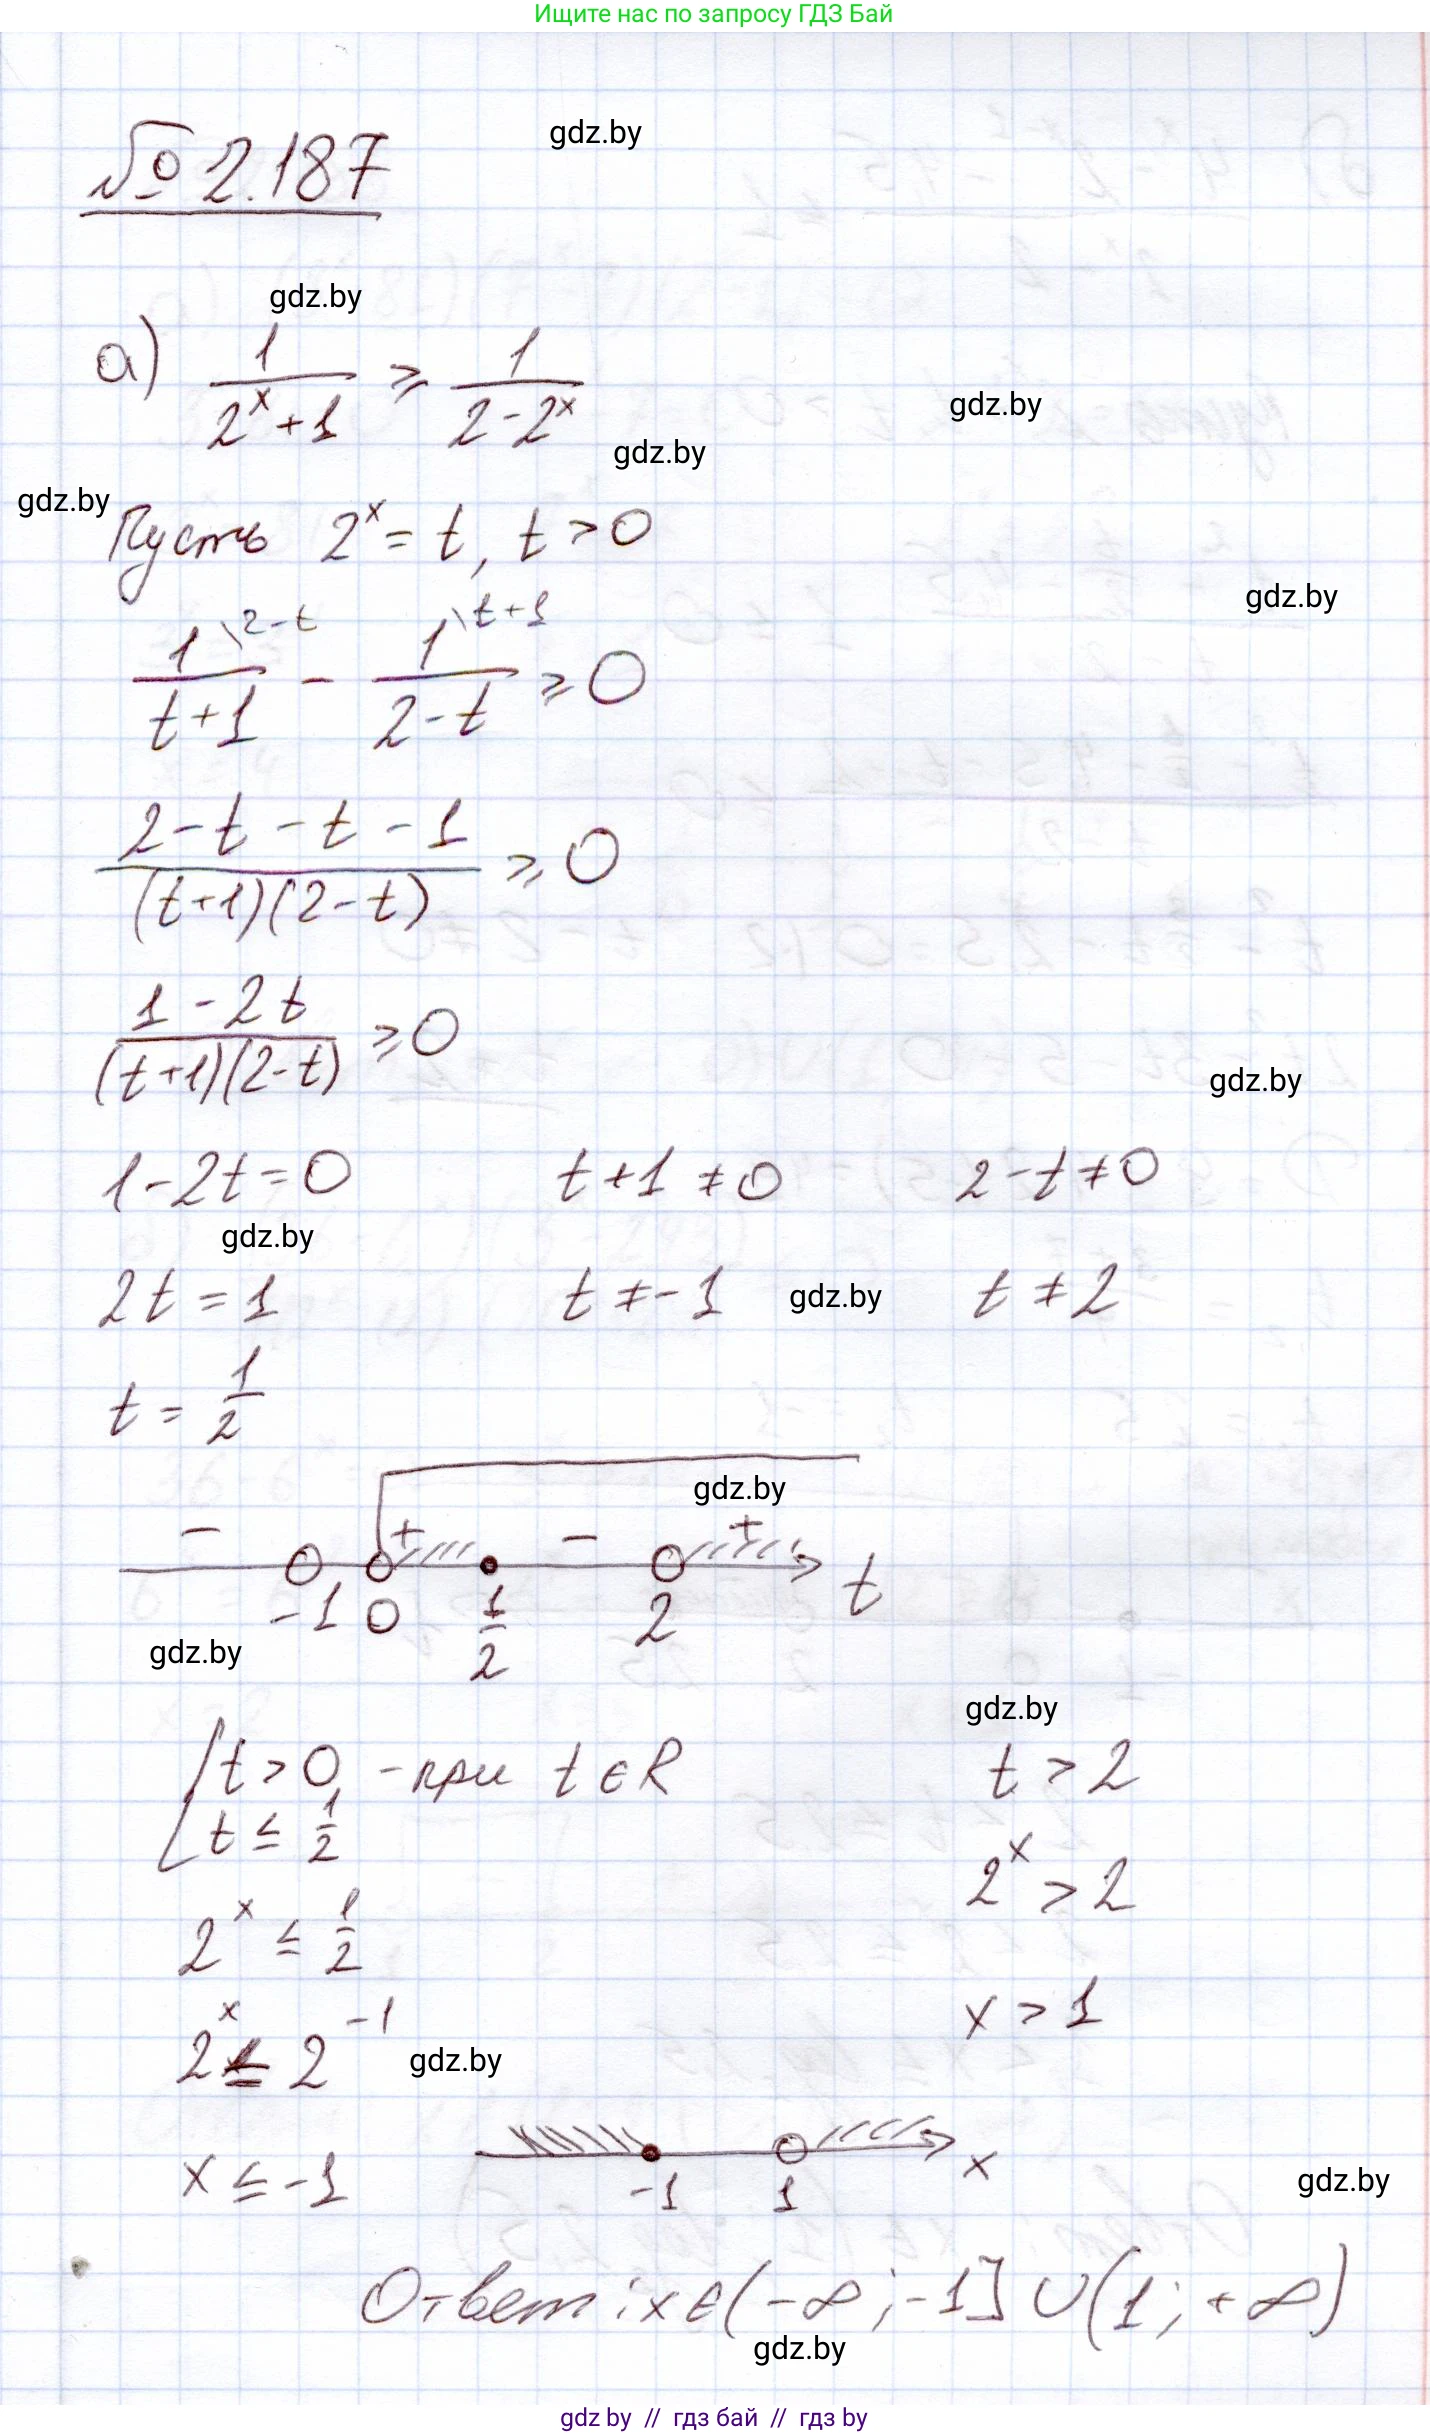 Ищите нас по запросу ГДЗ Бай
№ 2.187
gdz.by
gdz.by
а) 1/(2^x+1) ≥ 1/(2-2^x)
gdz.by
gdz.by
gdz.by
Пусть 2^x = t, t > 0
gdz.by
1\2-t/(t+1) - 1\t+1/(2-t) ≥ 0
(2-t-t-1)/((t+1)(2-t)) ≥ 0
(1-2t)/((t+1)(2-t)) ≥ 0
gdz.by
1-2t=0 t+1≠0 2-t≠0
gdz.by
2t=1 t≠-1 gdz.by t≠2
t = 1/2
gdz.by
- + - +
-1 0 1/2 2 t
gdz.by
gdz.by
t > 0 - при t ∈ R t > 2
t ≤ 1/2
2^x ≤ 1/2 2^x > 2
2^x ≤ 2^-1 x > 1
gdz.by
x ≤ -1 -1 1 x
gdz.by
Ответ: x ∈ (-∞; -1] ∪ (1; +∞)
gdz.by
gdz by // гдз бай // гдз by